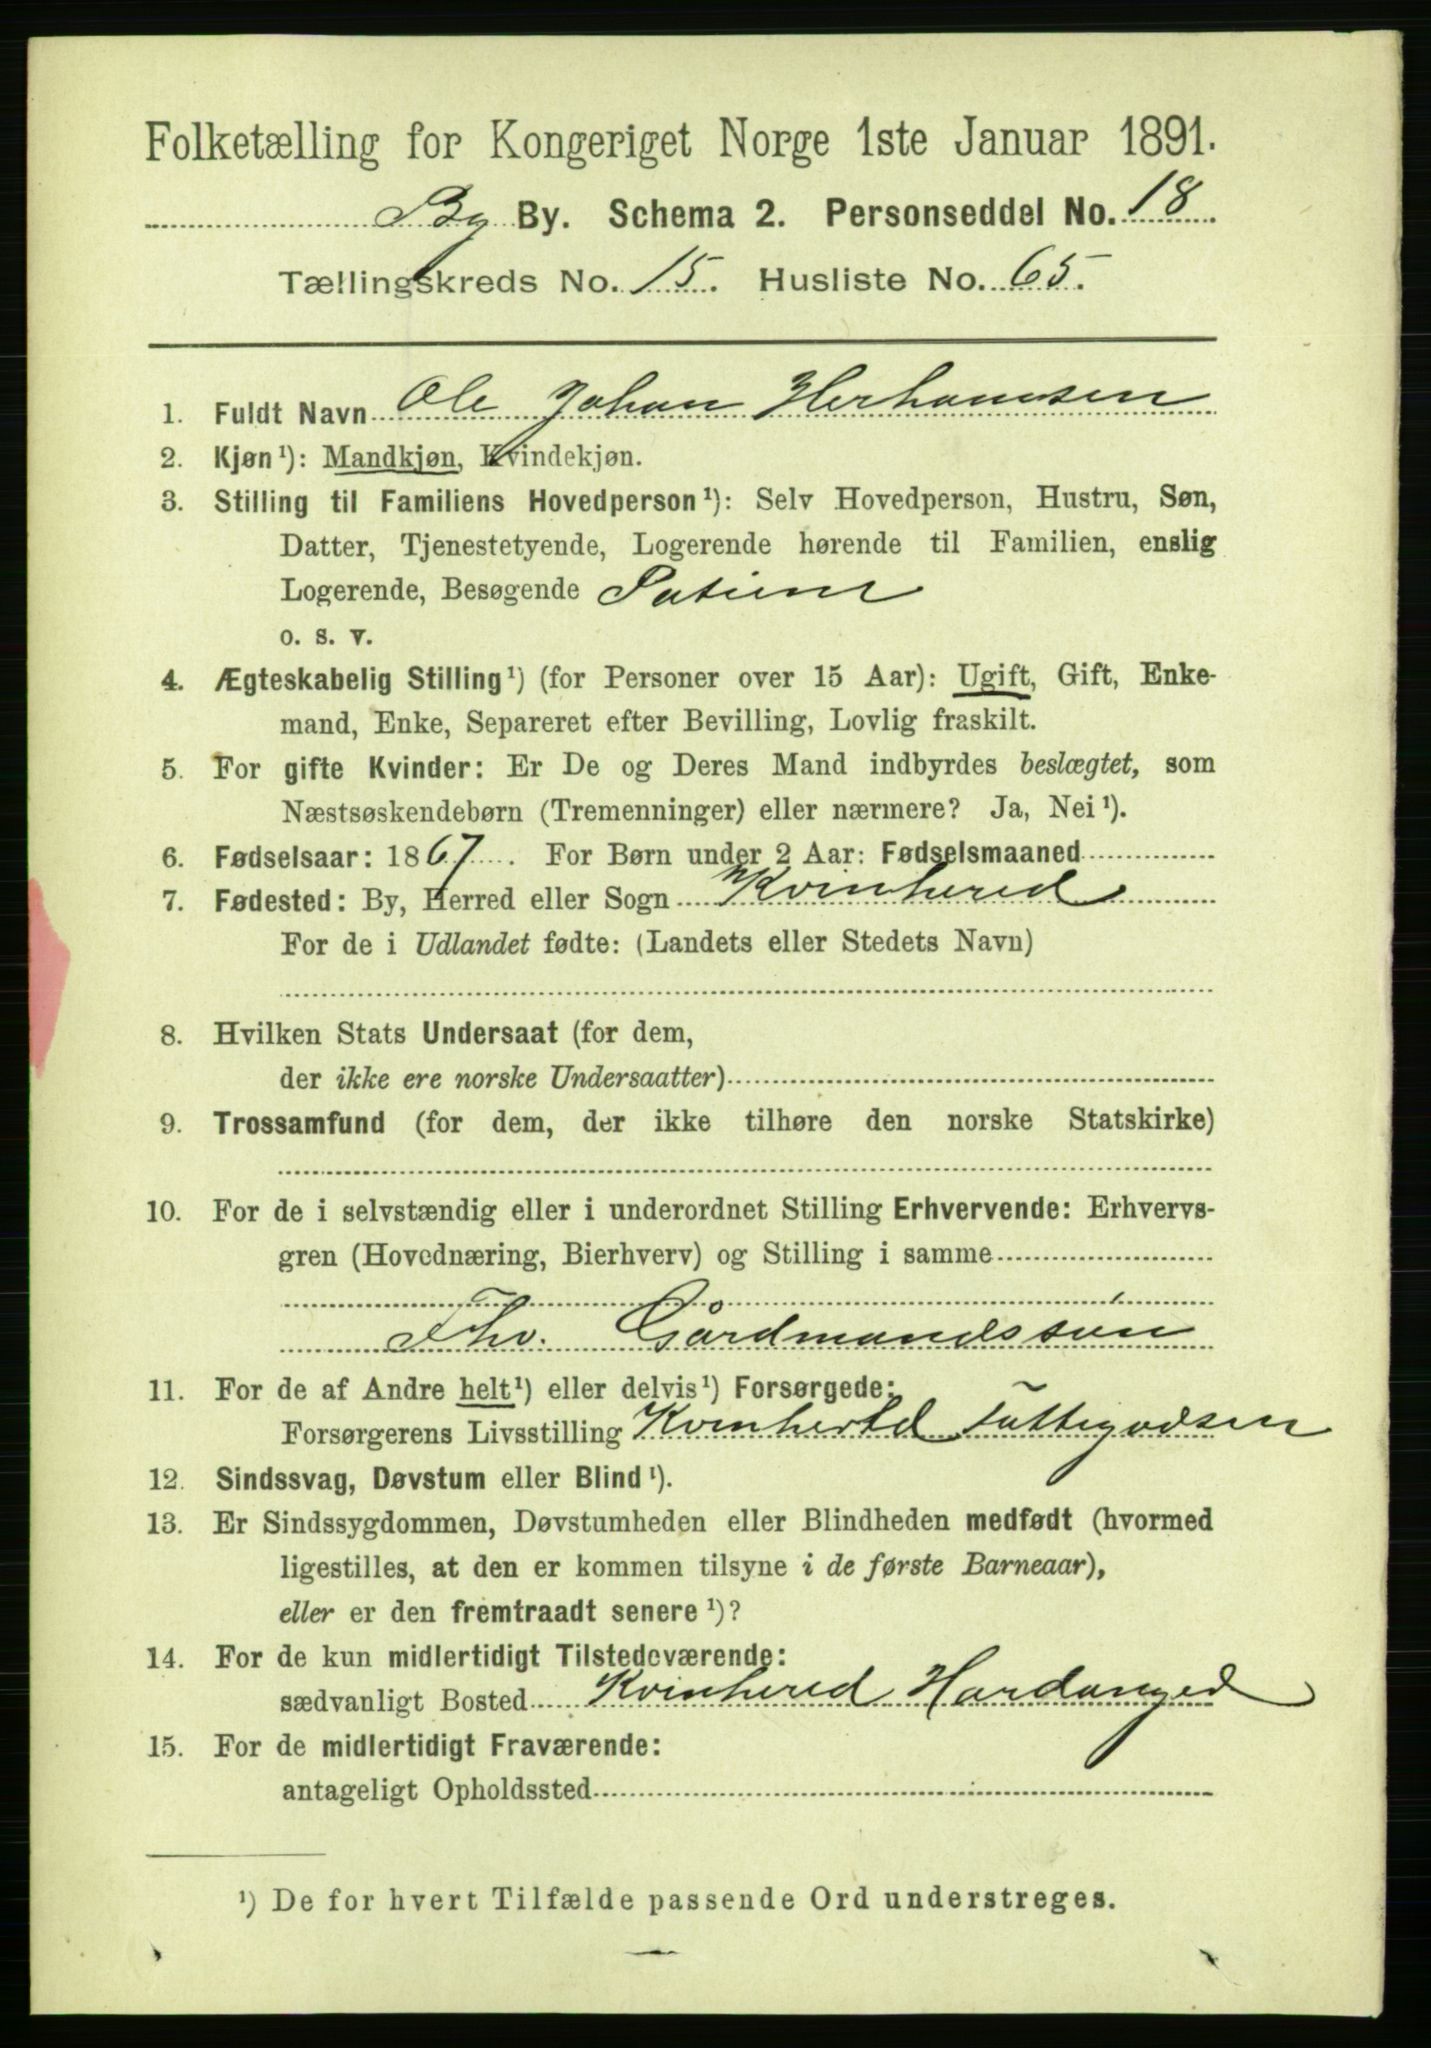 Folketælling for Kongeriget Norge 1ste Januar 1891.
By By. Schema 2. Personseddel No. 18.
Tællingskreds No. 15. Husliste No. 65.
1. Fuldt Navn Ole Johan Herhamsen
2. Kjøn¹): Mandkjøn, Kvindekjøn.
3. Stilling til Familiens Hovedperson¹): Selv Hovedperson, Hustru, Søn,
Datter, Tjenestetyende, Logerende hørende til Familien, enslig
Logerende, Besøgende Patient
o. s. v.
4. Ægteskabelig Stilling¹) (for Personer over 15 Aar): Ugift, Gift, Enke-
mand, Enke, Separeret efter Bevilling, Lovlig fraskilt.
5. For gifte Kvinder: Er De og Deres Mand indbyrdes beslægtet, som
Næstsøskendebørn (Tremenninger) eller nærmere? Ja, Nei¹).
6. Fødselsaar: 1867. For Børn under 2 Aar: Fødselsmaaned
7. Fødested: By, Herred eller Sogn Kvinhered
For de i Udlandet fødte: (Landets eller Stedets Navn)
8. Hvilken Stats Undersaat (for dem,
der ikke ere norske Undersaatter)
9. Trossamfund (for dem, der ikke tilhøre den norske Statskirke)
10. For de i selvstændig eller i underordnet Stilling Erhvervende: Erhvervs-
gren (Hovednæring, Bierhverv) og Stilling i samme
Fhv. Gårdmandssøn
11. For de af Andre helt¹) eller delvis¹) Forsørgede:
Forsørgerens Livsstilling Kvinherred Fattigvæsen
12. Sindssvag, Døvstum eller Blind¹).
13. Er Sindssygdommen, Døvstumheden eller Blindheden medfødt (hvormed
ligestilles, at den er kommen tilsyne i de første Barneaar),
eller er den fremtraadt senere¹)?
14. For de kun midlertidigt Tilstedeværende:
sædvanligt Bosted Kvinhered Hardanger
15. For de midlertidigt Fraværende:
antageligt Opholdssted
¹) De for hvert Tilfælde passende Ord understreges.